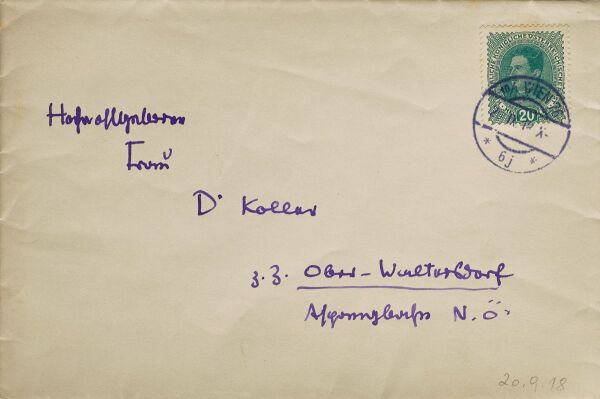 Hochwohlgeboren
Frau
Dr Koller
z. Z. Ober-Waltersdorf
Aspangbahn N. Ö.
20
WIEN
6j
20.9.18